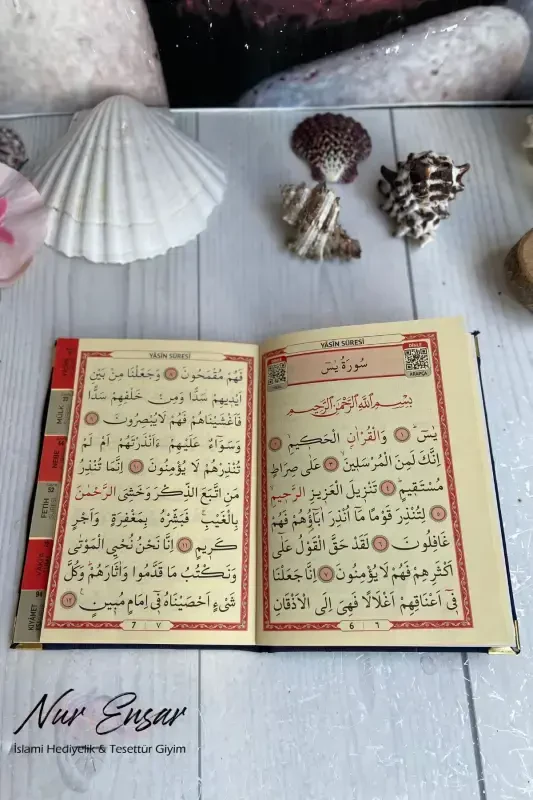 YÂSÎN SÛRESİ
DİNLE
ARAPÇA
سُورَةُ يٰسٓ
بِسْمِ اللّٰهِ الرَّحْمٰنِ الرَّحِيمِ
يٰسٓ ﴿١﴾ وَالْقُرْاٰنِ الْحَكِيمِ ﴿٢﴾
اِنَّكَ لَمِنَ الْمُرْسَلِينَ ﴿٣﴾ عَلٰى صِرَاطٍ
مُسْتَقِيمٍ ﴿٤﴾ تَنْزِيلَ الْعَزِيزِ الرَّحِيمِ
﴿٥﴾ لِتُنْذِرَ قَوْمًا مَٓا اُنْذِرَ اٰبَٓاؤُ۬هُمْ فَهُمْ
غَافِلُونَ ﴿٦﴾ لَقَدْ حَقَّ الْقَوْلُ عَلٰٓى
اَكْثَرِهِمْ فَهُمْ لَا يُؤْمِنُونَ ﴿٧﴾ اِنَّا جَعَلْنَا
فِٓي اَعْنَاقِهِمْ اَغْلَالًا فَهِيَ اِلَى الْاَذْقَانِ
6 ٦
YÂSÎN SÛRESİ
فَهُمْ مُقْمَحُونَ ﴿٨﴾ وَجَعَلْنَا مِنْ بَيْنِ
اَيْدِيهِمْ سَدًّا وَمِنْ خَلْفِهِمْ سَدًّا
فَاَغْشَيْنَاهُمْ فَهُمْ لَا يُبْصِرُونَ ﴿٩﴾
وَسَوَٓاءٌ عَلَيْهِمْ ءَاَنْذَرْتَهُمْ اَمْ لَمْ
تُنْذِرْهُمْ لَا يُؤْمِنُونَ ﴿١٠﴾ اِنَّمَا تُنْذِرُ
مَنِ اتَّبَعَ الذِّكْرَ وَخَشِيَ الرَّحْمٰنَ
بِالْغَيْبِۚ فَبَشِّرْهُ بِمَغْفِرَةٍ وَاَجْرٍ
كَرِيمٍ ﴿١١﴾ اِنَّا نَحْنُ نُحْيِ الْمَوْتٰى
وَنَكْتُبُ مَا قَدَّمُوا وَاٰثَارَهُمْۜ وَكُلَّ
شَيْءٍ اَحْصَيْنَاهُ فِٓي اِمَامٍ مُبِينٍ۟ ﴿١٢﴾
7 ٧
MÜLK
NEBE
FETİH
KIYAMET
Nur Ensar
İslami Hediyelik & Tesettür Giyim